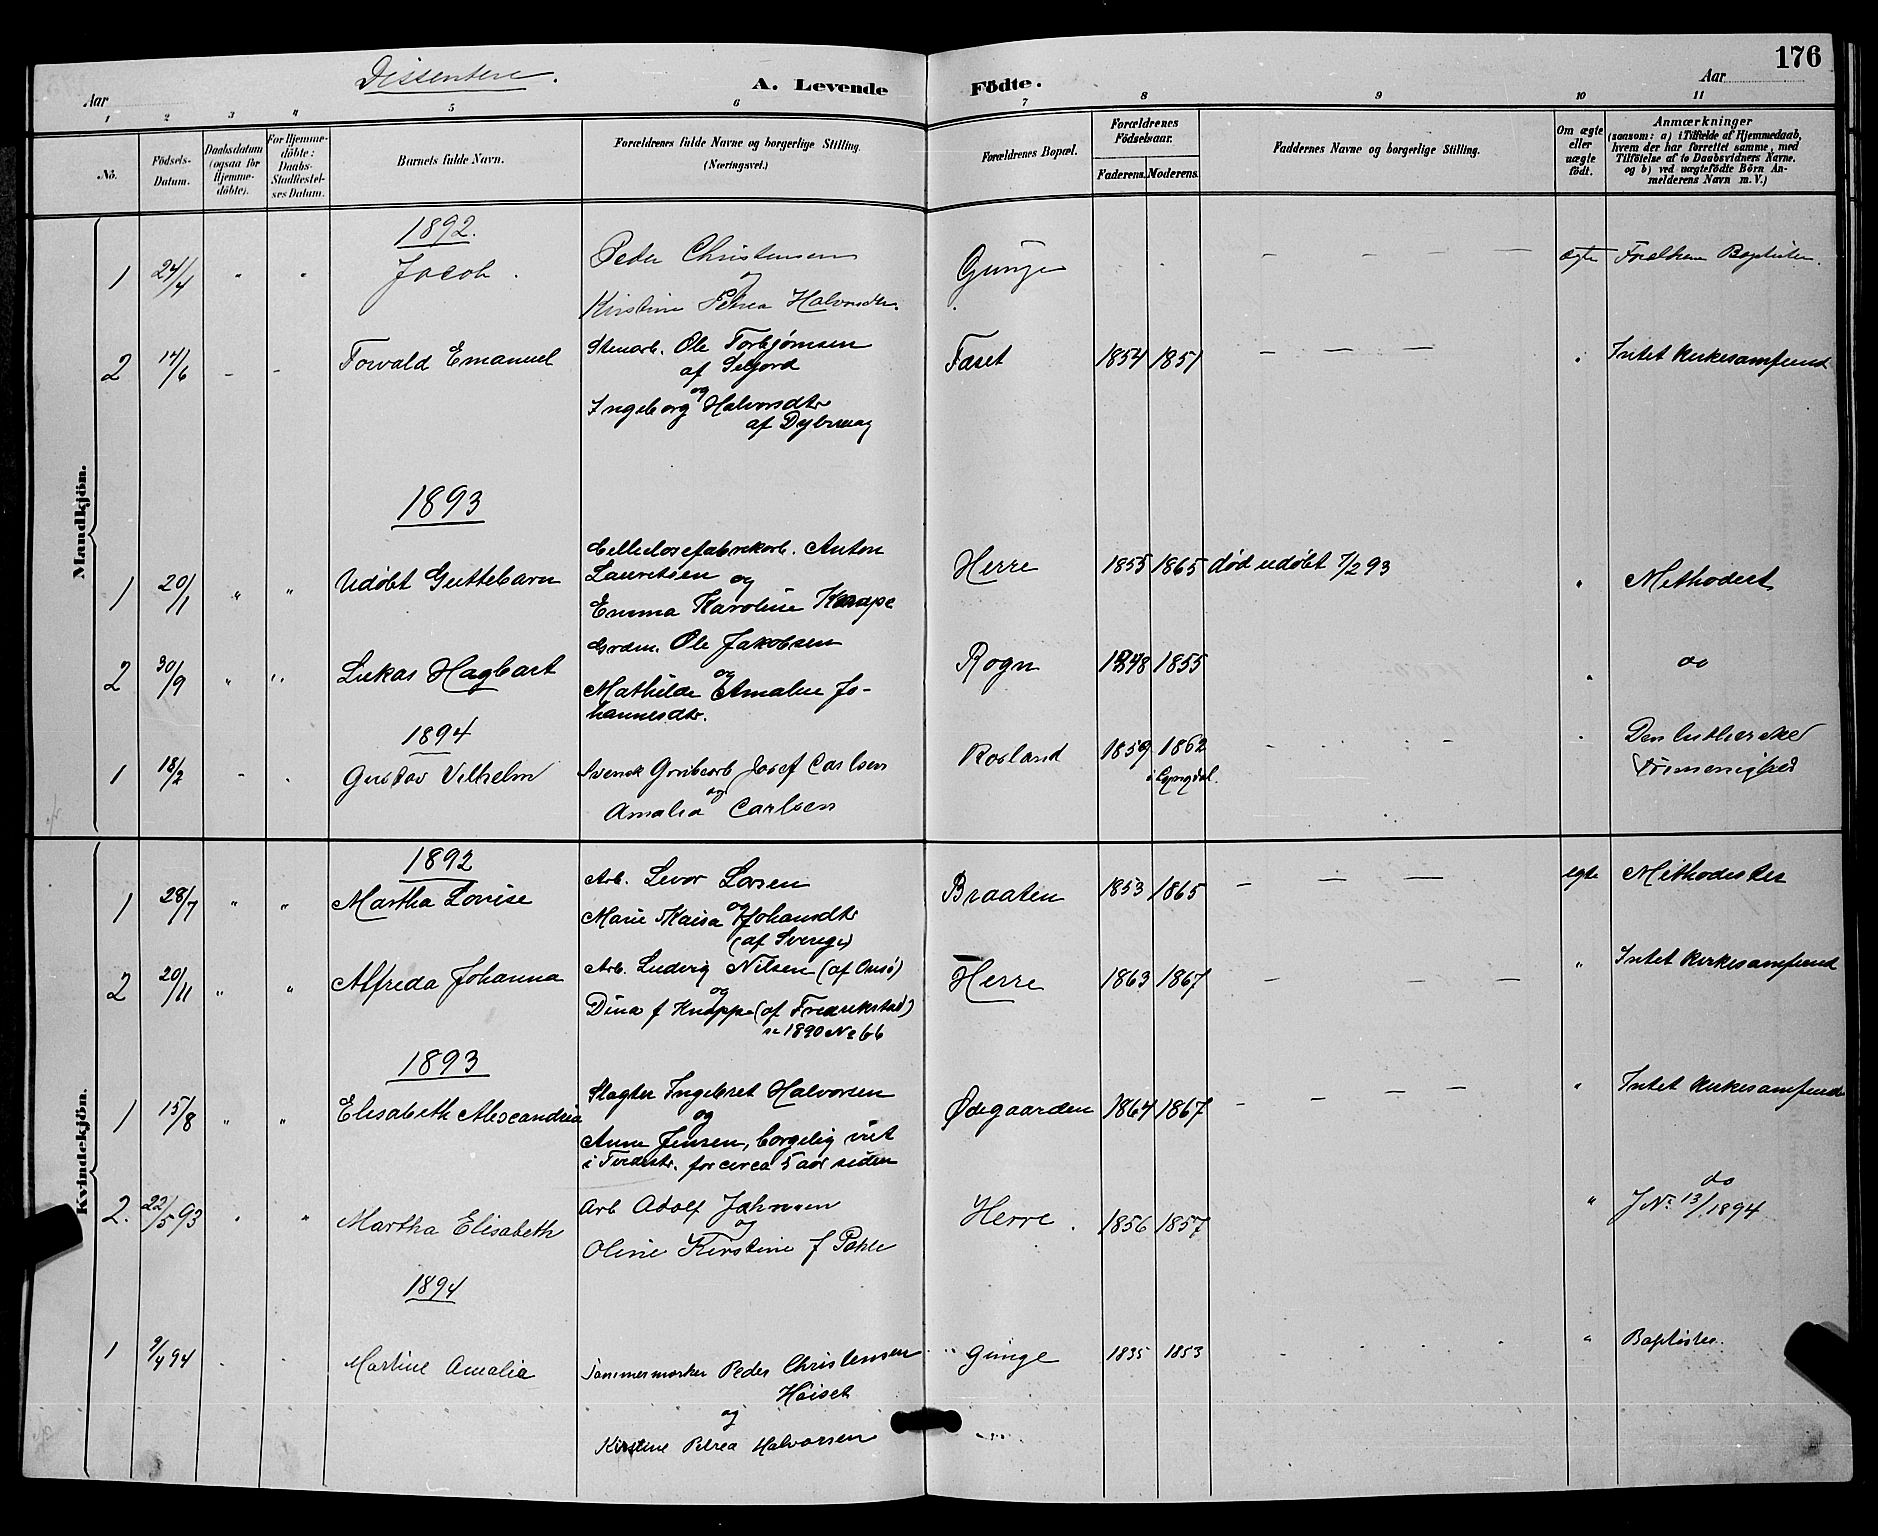 176
Dissentere.
A. Levende Födte.
Aar
Aar
1 2 3 4 5 6 7 8 9 10 11
No.
Födsels-Datum.
Daabsdatum (ogsaa for Hjemme-döbte).
For Hjemme-döbte: Daabs-Stadfæstel-ses Datum.
Barnets fulde Navn.
Forældrenes fulde Navne og borgerlige Stilling. (Næringsvei.)
Forældrenes Bopæl.
Forældrenes Födselsaar.
Faderens. Moderens.
Faddernes Navne og borgerlige Stilling.
Om ægte eller uægte födt.
Anmærkninger
(saasom: a) i Tilfælde af Hjemmedaab,
hvem der har forrettet samme, med
Tilföielse af to Daabsvidners Navne,
og b) ved uægtefödte Börn An-
melderens Navn m. V.)
Mandkjön.
1892.
1 24/4 " " Jacob. Peder Christensen Gunge — — — ægte Forældrene Baptister.
og
Kirstine Petrea Halvorsdtr.
2 14/6 – – Torvald Emanuel Stenarb. Ole Torbjørnsen Faset 1854 1857 — — — " Intet Kirkesamfund
af Seljord
og
Ingeborg Halvorsdtr
af Dybvaag
1893
1 20/1 " " Udøbt Guttebarn Cellulosefabrikarb. Anton Herre 1855 1865 død udøbt 7/2 93 " Methodist
Lauritsen og
Emma Karoline Knape
2 30/9 " " Lukas Hagbart Grdm. Ole Jakobsen Rogn 1848 1855 " do
og
Mathilde Amalie Jo-
hannesdtr.
1894
1 18/2 – " Gustav Vilhelm Svensk Grubearb Josef Carlsen Rosland 1859 1862 – – – " Den lutherske
og
Amalia Carlsen
i Lyngdal. Frimenighed
Kvindekjön.
1892
1 28/7 " " Martha Lovise Arb. Levor Larsen Braaten 1853 1865 — — — egte Methodister
og
Marie Kaisa Johansdtr
(af Sverige)
2 20/11 " " Alfreda Johanna Arb. Ludvig Nilsen (af Onsö) Herre 1863 1867 – – – " Intet Kirkesamfund
og
Dina f Knappe (af Fredrikstad)
se 1890 No 66
1893
1 15/8 " " Elisabeth Alexandria Slagter Ingebret Halvorsen Ødegaarden 1864 1867 – – – – " Intet Kirkesamfund
og
Anne Jensen, borgelig viet
i Tvedestr. for circa 5 aar siden
2. 22/5 93 " " Martha Elisabeth Arb Adolf Jahnsen Herre. 1856 1857 " do
og
Oline Kirstine f Pahle
J No 13/1894
1894
1 9/4 94 Martine Amalia Tømmermerker Peder Christensen Gunge 1835 1853 " Baptister.
Höiset
og
Kirstine Petrea Halvorsen